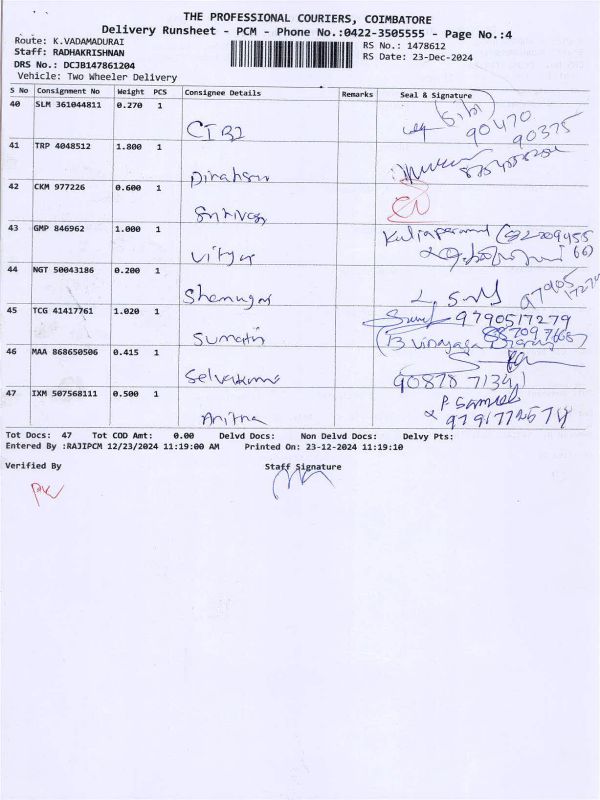 THE PROFESSIONAL COURIERS, COIMBATORE
Delivery Runsheet - PCM - Phone No.:0422-3505555 - Page No.:4
Route: K.VADAMADURAI
RS No.: 1478612
Staff: RADHAKRISHNAN
RS Date: 23-Dec-2024
DRS No.: DCJB147861204
Vehicle: Two Wheeler Delivery
S No Consignment No Weight PCS Consignee Details Remarks Seal & Signature
40 SLM 361044811 0.270 1
CIBI (Sibi)
90470
90375
41 TRP 4048512 1.800 1
42 CKM 977226 0.600 1
43 GMP 846962 1.000 1
Vitya
44 NGT 50043186 0.200 1
Shenugar
45 TCG 41417761 1.020 1
9790517279
Sumathi
(B vinayaga
46 MAA 868650506 0.415 1
Selvakumar
90878 7134
47 IXM 507568111 0.500 1
P Samuel
Anitha
Tot Docs: 47 Tot COD Amt: 0.00 Delvd Docs: Non Delvd Docs: Delvy Pts:
Entered By :RAJIPCM 12/23/2024 11:19:00 AM Printed On: 23-12-2024 11:19:10
Verified By Staff Signature